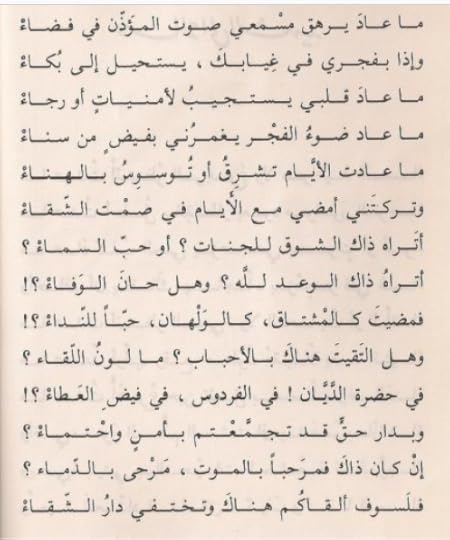 ما عادَ يرهق مسْمعي صوت المؤذّن في فضاءْ
وإذا بفجري في غِيابك ، يستحيل إلى بُكاءْ
ما عادَ قلبي يستجيبُ لأمنياتٍ أو رجاءْ
ما عاد ضوءُ الفجْر يغمرُني بفيضٍ من سناءْ
ما عادت الأيَّام تشرقُ أو تُوسوِسُ بالهناءْ
وتركتَني أمضي مع الأَيام في صمْت الشّقاءْ
أتَراه ذاك الشوق للجنات ؟ أو حبّ السماءْ ؟
أتراهُ ذاك الوعد للَّه ؟ وهل حانَ الوَفاءْ ؟!
فمضيتَ كالمْشتاق، كالوَلْهان، حبّاً للنّداءْ ؟!
وهل التَقيتَ هناكَ بالأحباب ؟ ما لونُ اللّقاء ؟
في حضرة الدَّيَّان ! في الفردوس ، في فيضِ العَطاءْ ؟!
وبدار حقٍّ قد تجمَّعْتم بأمنٍ واحْتماءْ ؟
إنْ كان ذاكَ فمرَحباً بالموت ، مَرْحى بالدّماء ؟
فلَسوف ألقاكُم هناكَ وتختفي دارُ الشّقاءْ